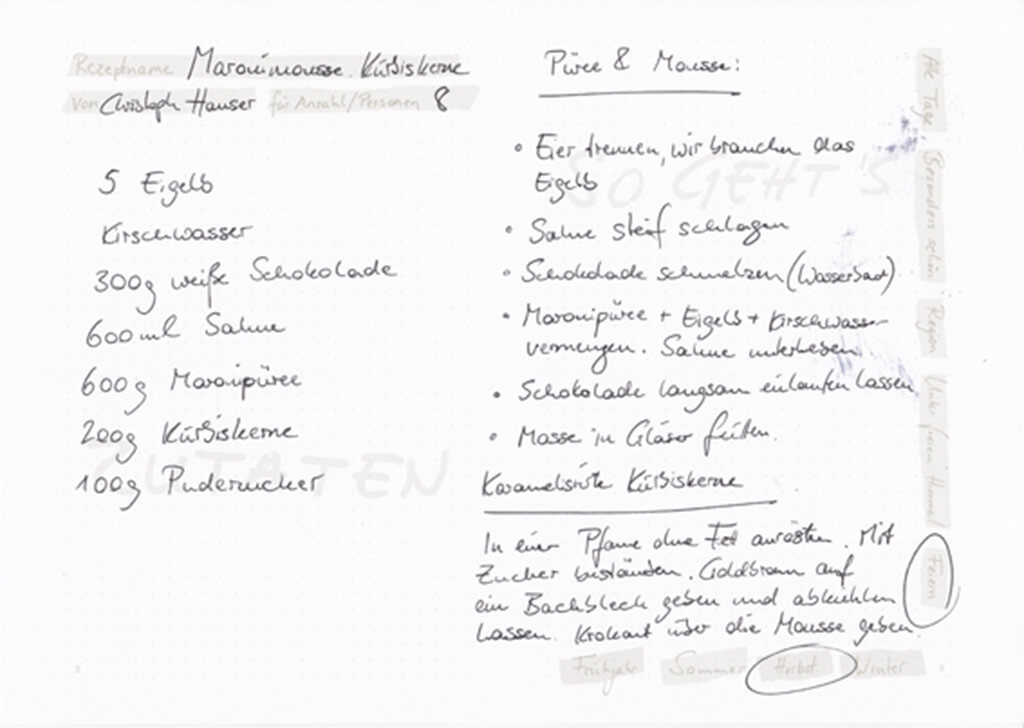 Rezeptname Maronimousse. Kürbiskerne
von Christoph Hauser für Anzahl/Personen 8
5 Eigelb
Kirschwasser
300g weiße Schokolade
600ml Sahne
600g Maronipüree
200g Kürbiskerne
100g Puderzucker
ZUTATEN
Püree & Mousse:
SO GEHT'S
• Eier trennen, wir brauchen das
Eigelb
• Sahne steif schlagen
• Schokolade schmelzen (Wasserbad)
• Maronipüree + Eigelb + Kirschwasser
vermengen. Sahne unterheben
• Schokolade langsam einlaufen lassen
• Masse in Gläser füllen.
Karamelisierte Kürbiskerne
In einer Pfanne ohne Fett anrösten. Mit
Zucker bestäuben. Goldbraun auf
ein Backblech geben und abkühlen
lassen. Krokant über die Mousse geben.
Alle Tage
Besonders schön
Region
Unter freiem Himmel
Feiern
Frühjahr Sommer Herbst Winter